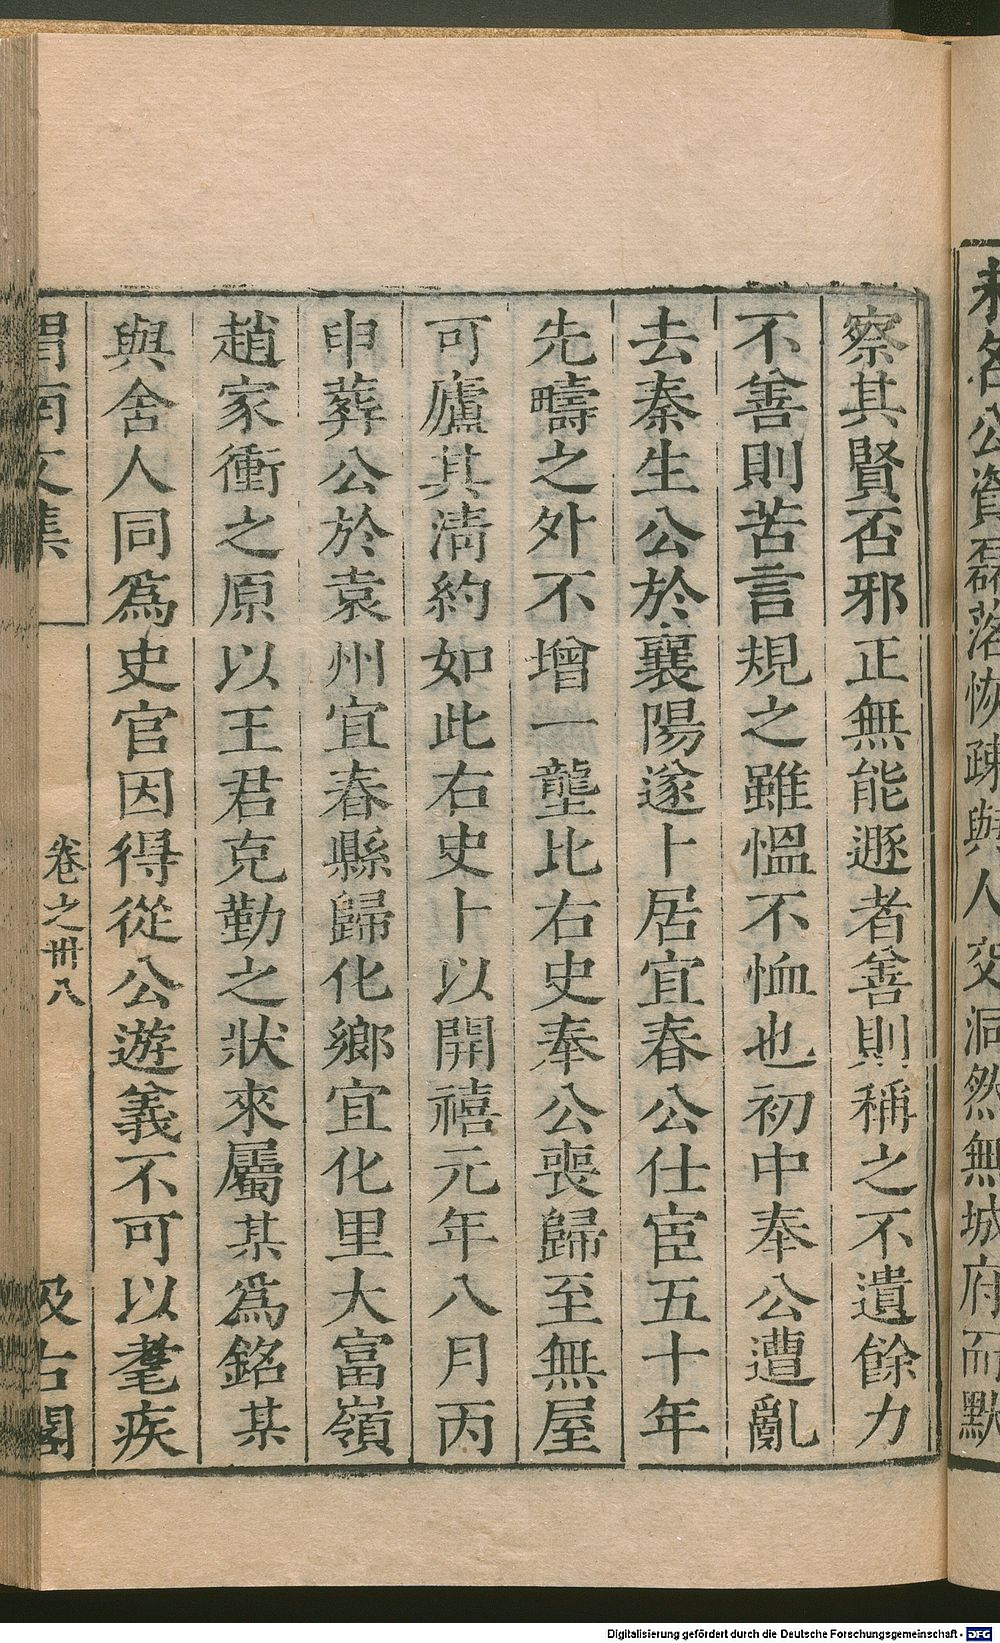 耒名公資磊落恢疎與人交洞然無城府而默
察其賢否邪正無能遯者善則稱之不遺餘力
不善則苦言規之雖慍不恤也初中奉公遭亂
去秦生公於襄陽遂卜居宜春公仕宦五十年
先疇之外不增一壟比右史奉公喪歸至無屋
可廬其清約如此右史卜以開禧元年八月丙
申葬公於袁州宜春縣歸化鄉宜化里大富嶺
趙家衝之原以王君克勤之狀來屬某為銘某
與舍人同為史官因得從公遊義不可以耄疾
渭南文集
卷之卅八
汲古閣
Digitalisierung gefördert durch die Deutsche Forschungsgemeinschaft - DFG